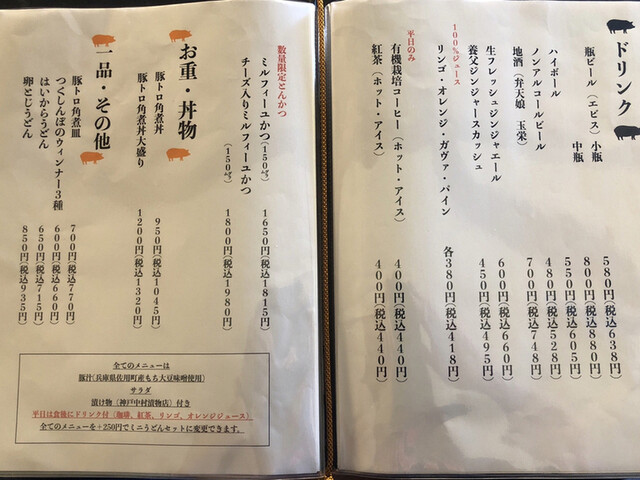 ドリンク
瓶ビール（エビス）小瓶 580円(税込638円)
中瓶 800円(税込880円)
ハイボール 550円(税込605円)
ノンアルコールビール 480円(税込528円)
地酒（弁天娘　玉栄） 700円(税込748円)
生フレッシュジンジャエール 600円(税込660円)
養父ジンジャースカッシュ 450円(税込495円)
100％ジュース
リンゴ・オレンジ・ガヴァ・パイン 各380円(税込418円)
平日のみ
有機栽培コーヒー（ホット・アイス） 400円(税込440円)
紅茶（ホット・アイス） 400円(税込440円)
数量限定とんかつ
ミルフィーユかつ(150㌘) 1650円(税込1815円)
チーズ入りミルフィーユかつ(150㌘) 1800円(税込1980円)
お重・丼物
豚トロ角煮丼 950円(税込1045円)
豚トロ角煮丼大盛り 1200円(税込1320円)
一品・その他
豚トロ角煮皿 700円(税込770円)
つくしんぼのウィンナー3種 600円(税込660円)
はいからうどん 650円(税込715円)
卵とじうどん 850円(税込935円)
全てのメニューは
豚汁(兵庫県佐用町産もち大豆味噌使用)
サラダ
漬け物（神戸中村漬物店）付き
平日は食後にドリンク付（珈琲、紅茶、リンゴ、オレンジジュース）
全てのメニューを+250円でミニうどんセットに変更できます。